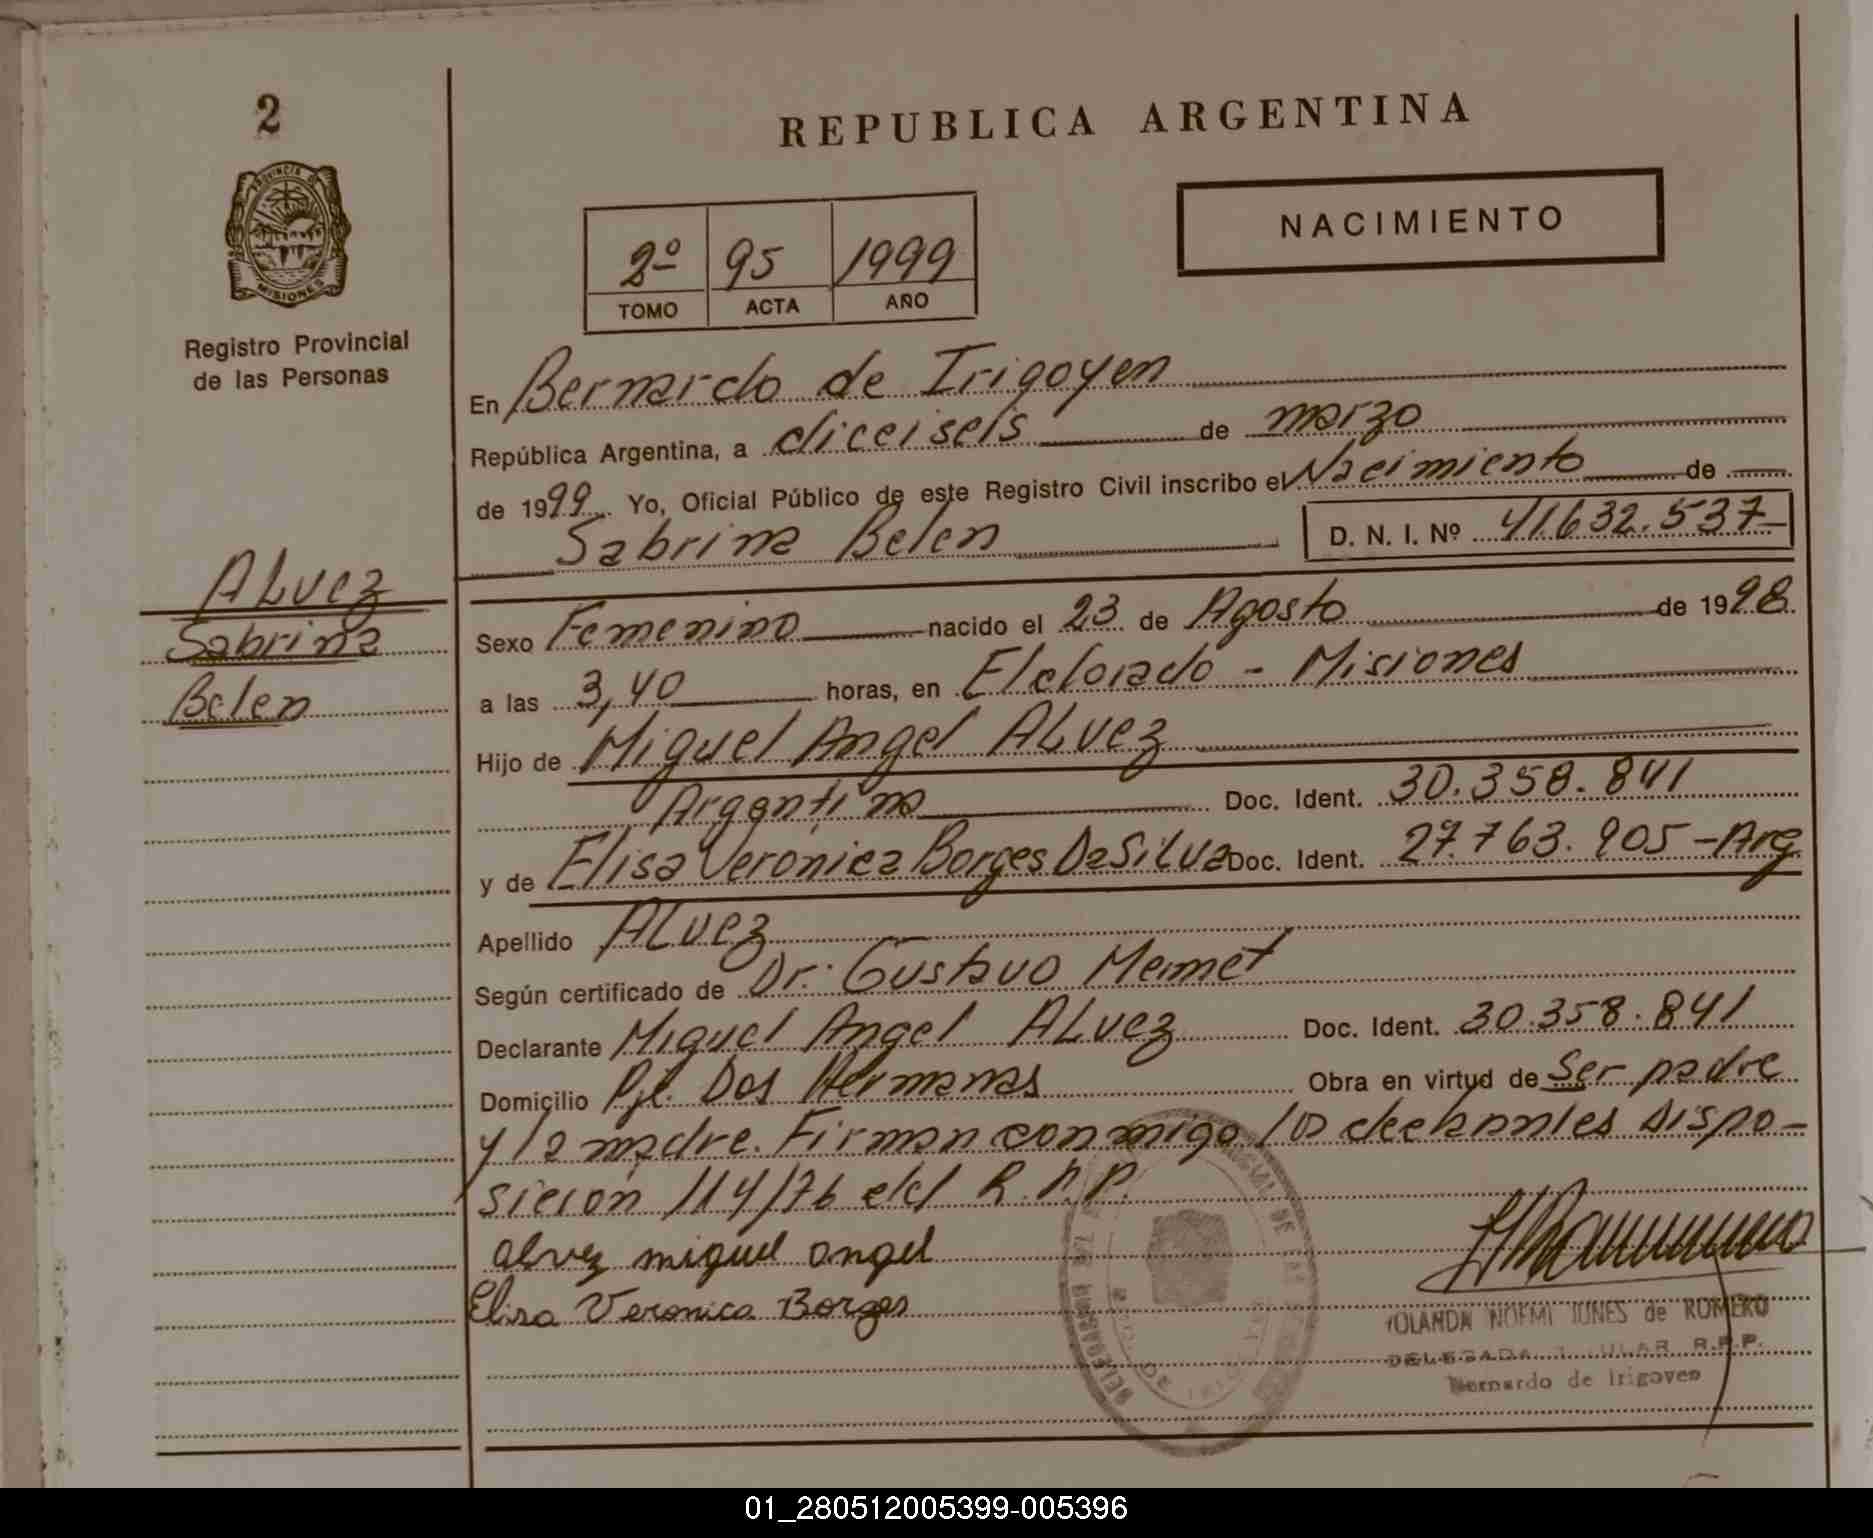 2
REPUBLICA ARGENTINA
PROVINCIA DE
MISIONES
Registro Provincial
de las Personas
NACIMIENTO
2º 95 1999
TOMO ACTA AÑO
En Bernardo de Irigoyen
República Argentina, a dieciseis de marzo
de 1999. Yo, Oficial Público de este Registro Civil inscribo el Nacimiento de
Sabrina Belen D. N. I. Nº 41.632.537
ALvez
Sabrina
Belen
Sexo Femenino nacido el 23 de Agosto de 1998.
a las 3,40 horas, en Eldorado - Misiones
Hijo de Miguel Angel ALvez
Argentina Doc. Ident. 30.358.841
y de Elisa Veronica Borges DaSilva Doc. Ident. 27.763.905 - Arg
Apellido ALvez
Según certificado de Dr. Gustavo Memet
Declarante Miguel Angel ALvez Doc. Ident. 30.358.841
Domicilio Pje. Dos Hermanas Obra en virtud de Ser padre
y la madre. Firman conmigo los declarantes Dispo-
sicion 114/76 del R.P.P.
alvez miguel angel
Elisa Veronica Borges
YOLANDA NOEMI de ROMERO
DELEGADA TITULAR R.P.P.
Bernardo de Irigoyen
01_280512005399-005396